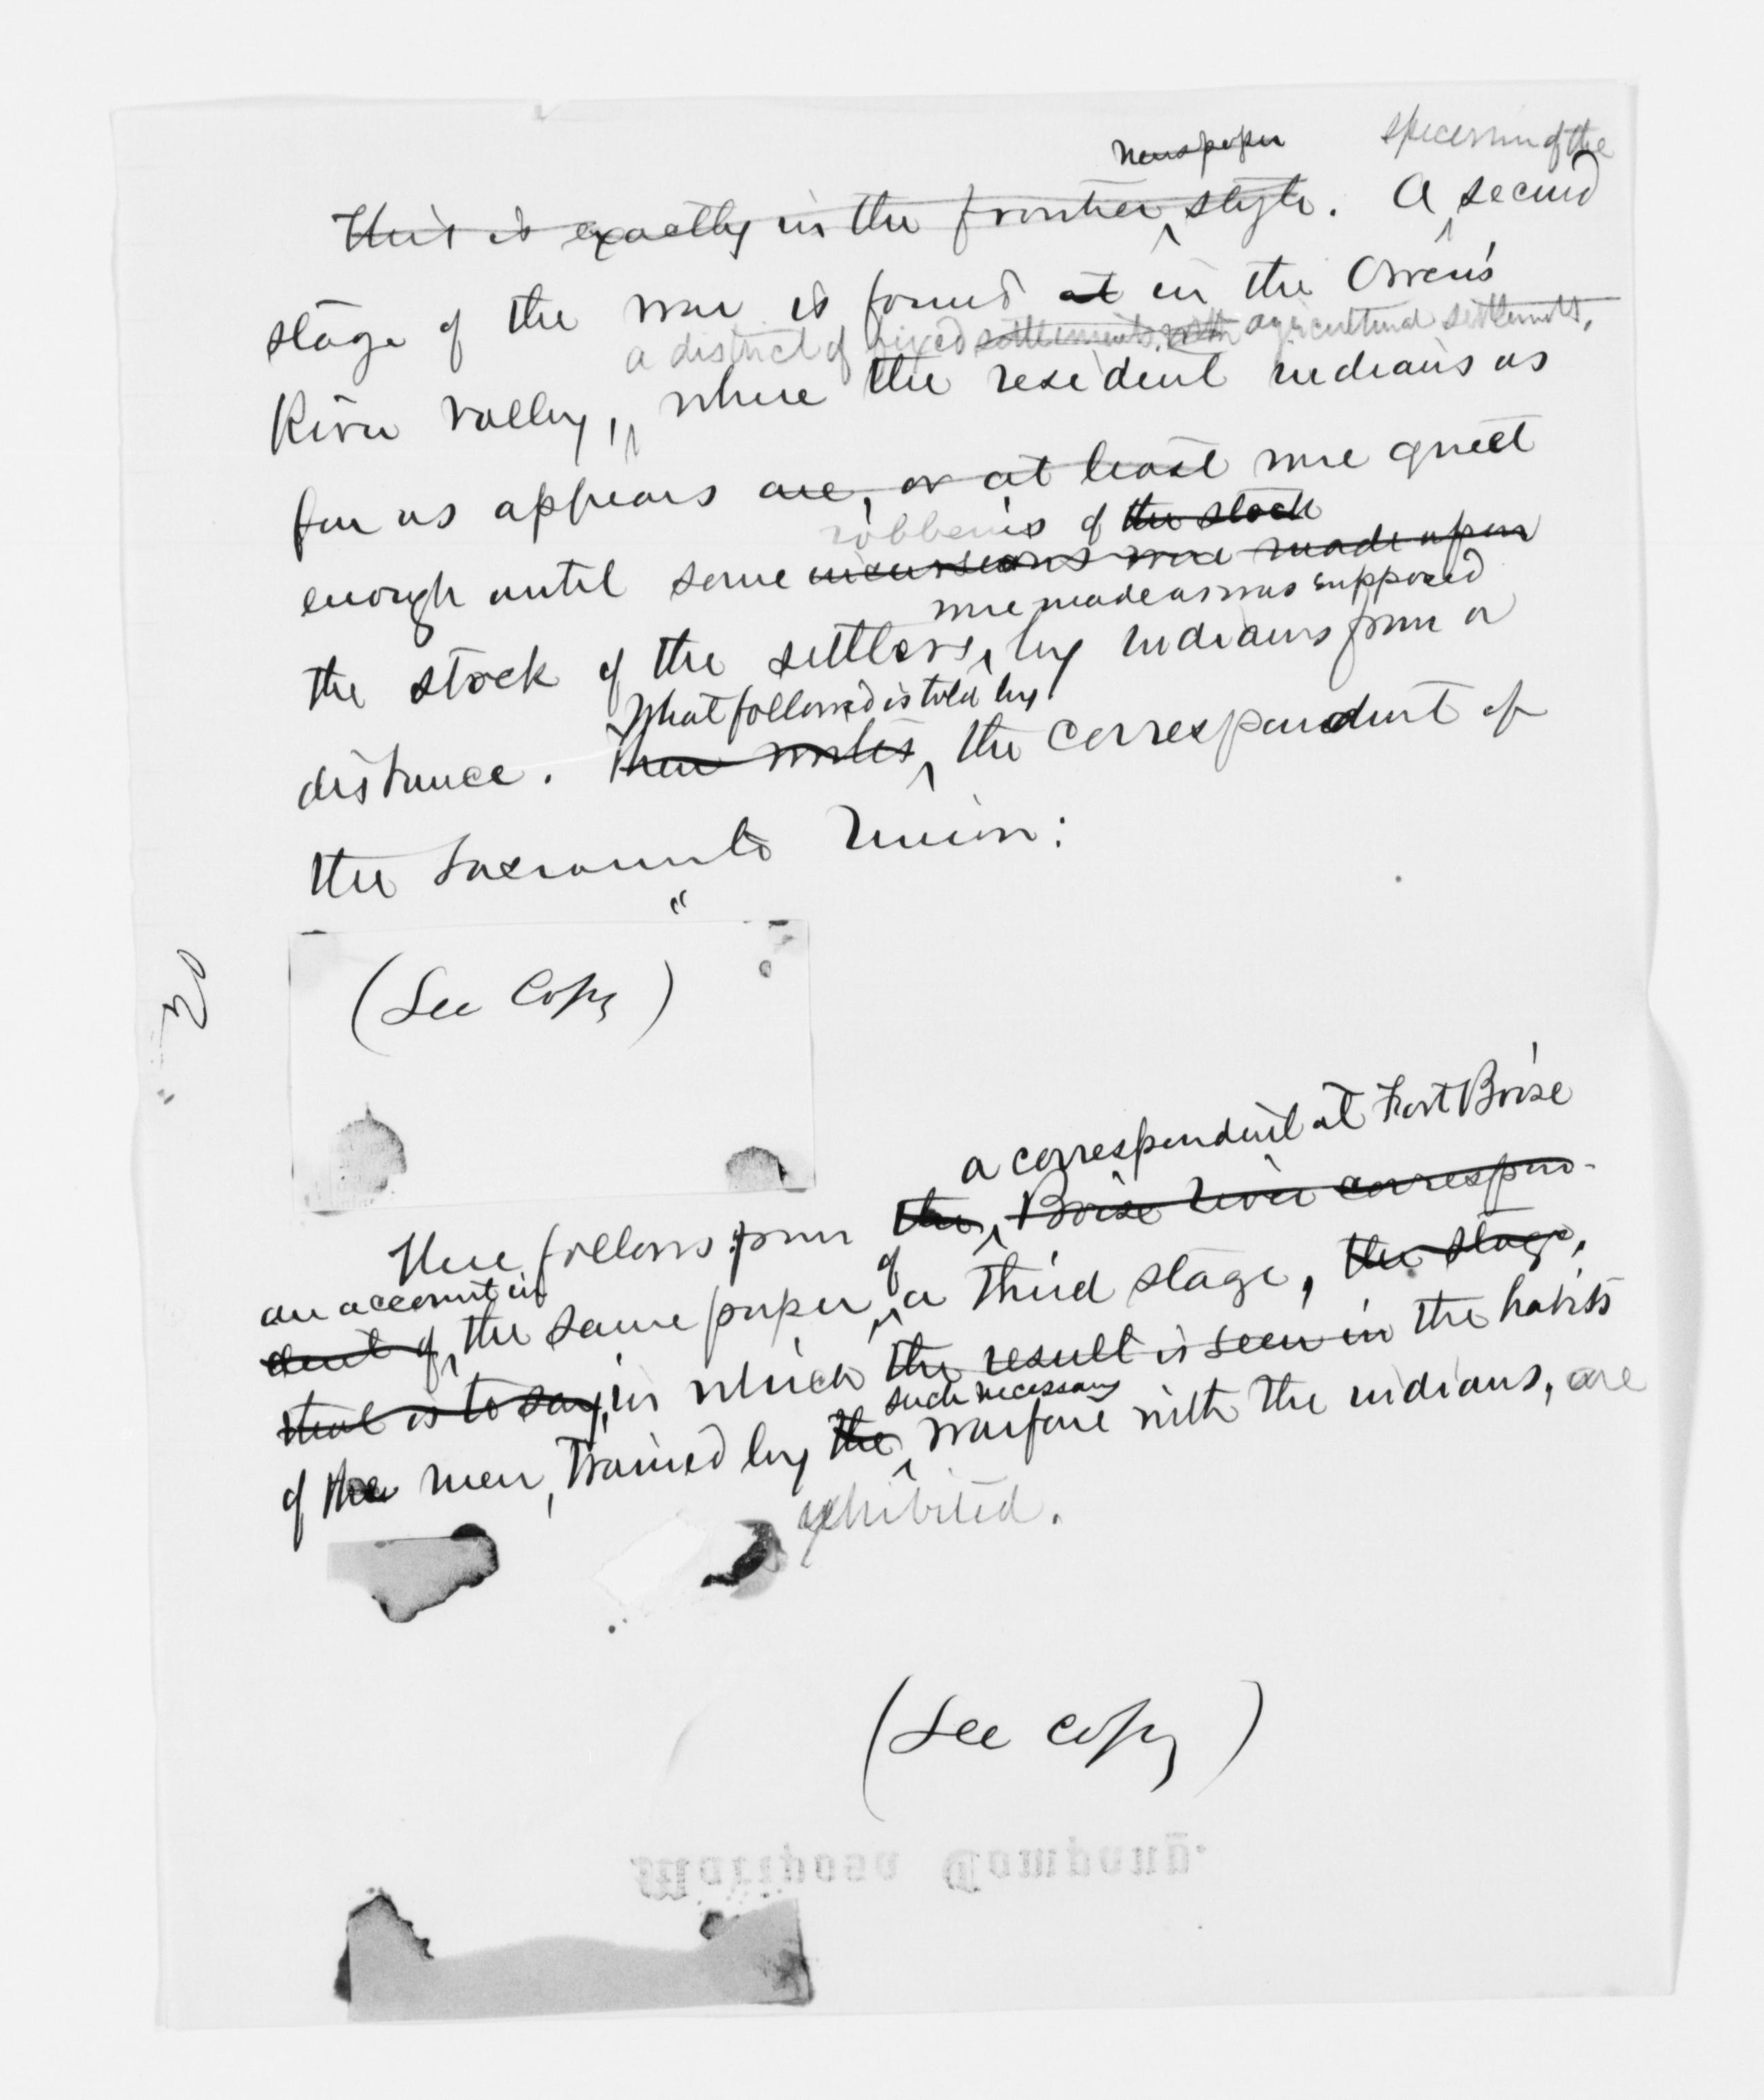 newspaper specimen of the
This is exactly in the frontier style. A second
stage of the war is found at in the Owen's
a district of fixed settlements, with agricultural settlements,
River valley, where the resident indians as
far as appears are, or at least were quiet
robberies of the stock
enough until some incursions were made upon
were made as was supposed
the stock of the settlers, by indians from a
What followed is told by
distance. the correspondent of
the Sacramento Union:
"
(See Copy)
20
a correspondent at Fort Boise
There follows from the Boise River correspon-
an account in of
dent of the same paper, a third stage, the stage,
that is to say, in which the result is seen in the habits
such necessary
of the men, trained by the warfare with the indians, are
exhibited.
(See copy)
Mariposa Company.